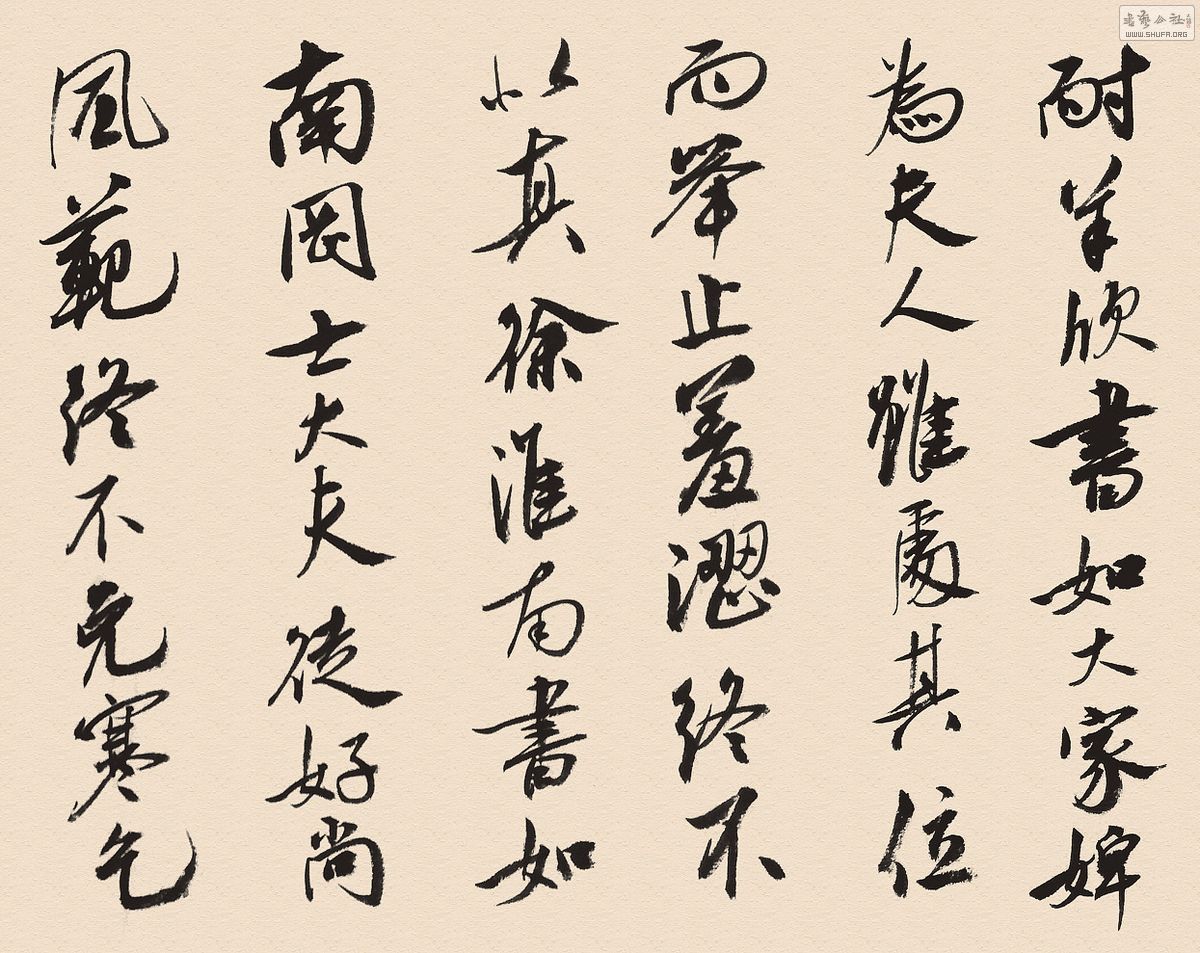 耐羊欣書如大家婢
為夫人雖處其位
而舉止羞澀終不
似真徐淮南書如
南岡士大夫徒好尚
風範終不免寒乞
書藝公社
WWW.SHUFA.ORG